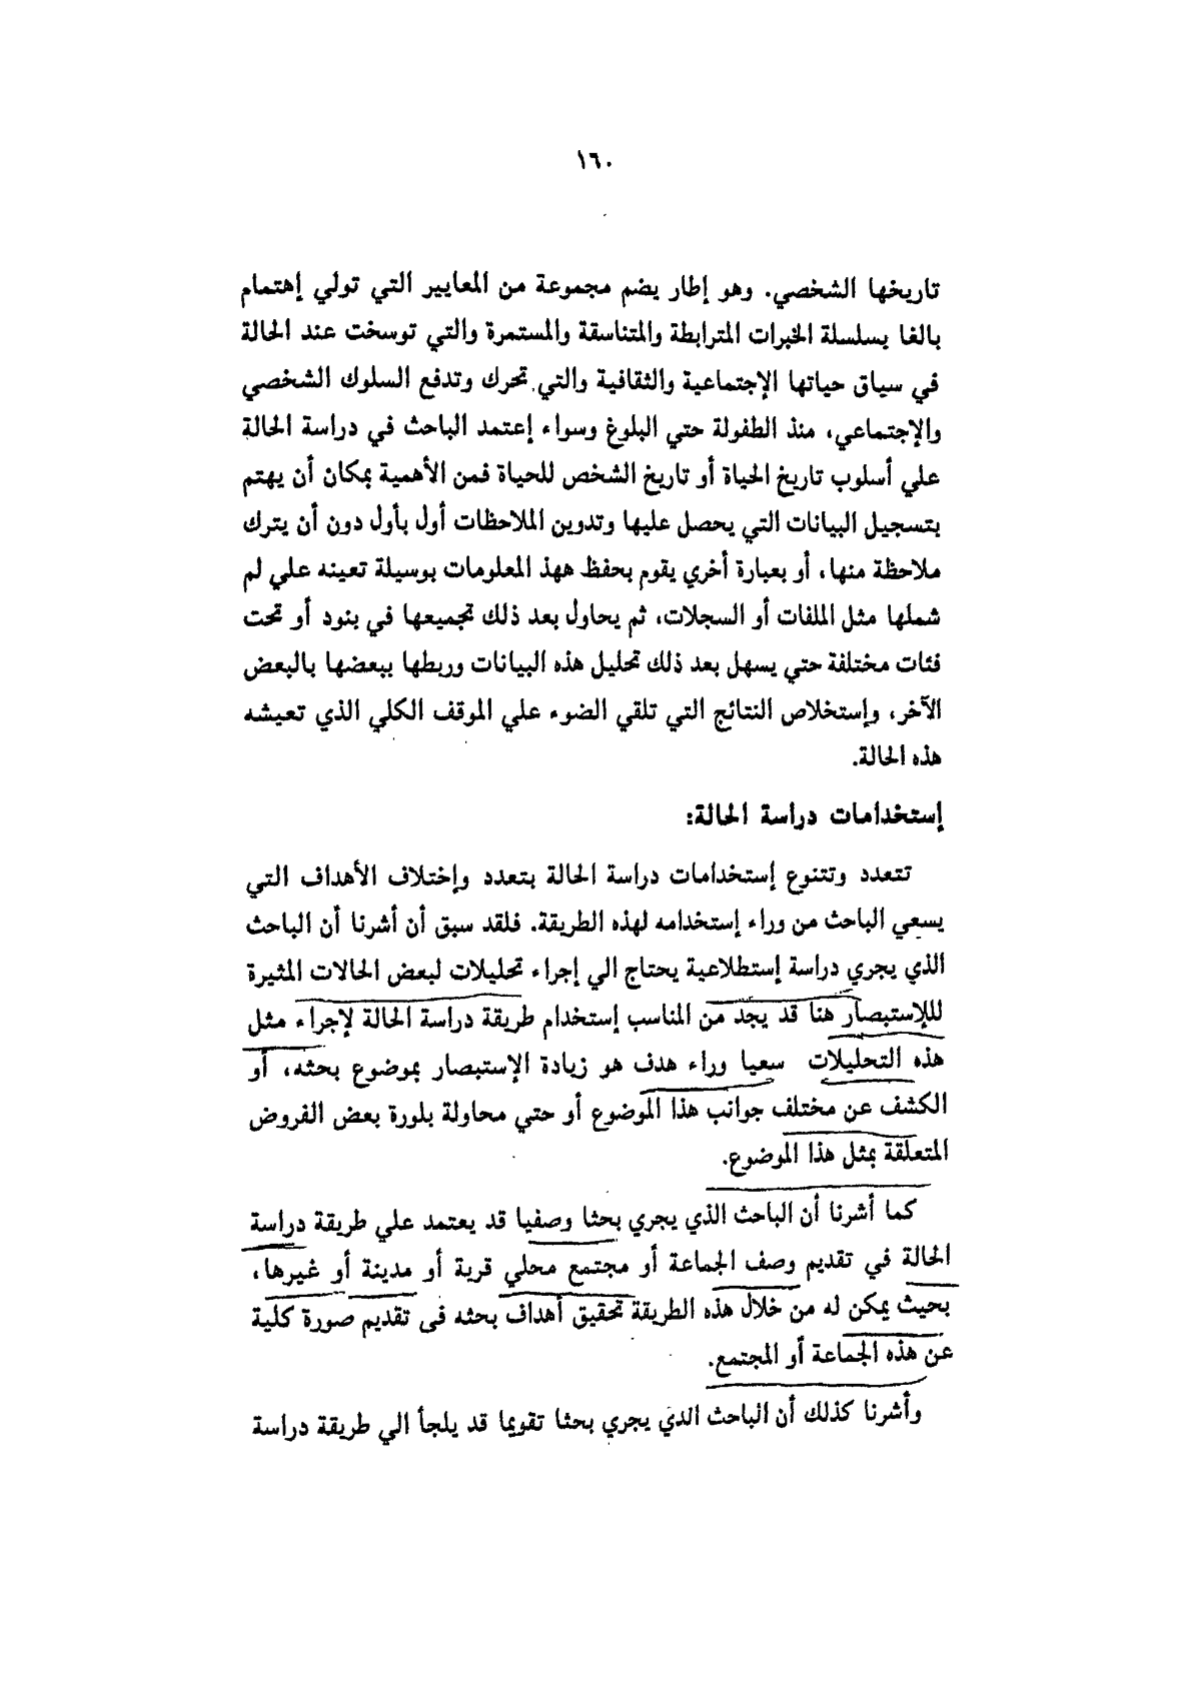 ١٦٠
تاريخها الشخصي. وهو إطار يضم مجموعة من المعايير التي تولي إهتمام
بالغا بسلسلة الخبرات المترابطة والمتناسقة والمستمرة والتي توسخت عند الحالة
في سياق حياتها الإجتماعية والثقافية والتي تحرك وتدفع السلوك الشخصي
والإجتماعي، منذ الطفولة حتي البلوغ وسواء إعتمد الباحث في دراسة الحالة
علي أسلوب تاريخ الحياة أو تاريخ الشخص للحياة فمن الأهمية بمكان أن يهتم
بتسجيل البيانات التي يحصل عليها وتدوين الملاحظات أول بأول دون أن يترك
ملاحظة منها، أو بعبارة أخري يقوم بحفظ ههذ المعلومات بوسيلة تعينه علي لم
شملها مثل الملفات أو السجلات، ثم يحاول بعد ذلك تجميعها في بنود أو تحت
فئات مختلفة حتي يسهل بعد ذلك تحليل هذه البيانات وربطها ببعضها بالبعض
الآخر، وإستخلاص النتائج التي تلقي الضوء علي الموقف الكلي الذي تعيشه
هذه الحالة.
إستخدامات دراسة الحالة:
تتعدد وتتنوع إستخدامات دراسة الحالة بتعدد وإختلاف الأهداف التي
يسعي الباحث من وراء إستخدامه لهذه الطريقة. فلقد سبق أن أشرنا أن الباحث
الذي يجري دراسة إستطلاعية يحتاج الي إجراء تحليلات لبعض الحالات المثيرة
لللإستبصار هنا قد يجد من المناسب إستخدام طريقة دراسة الحالة لإجراء مثل
هذه التحليلات سعيا وراء هدف هو زيادة الإستبصار بموضوع بحثه، أو
الكشف عن مختلف جوانب هذا الموضوع أو حتي محاولة بلورة بعض الفروض
المتعلقة بمثل هذا الموضوع.
كما أشرنا أن الباحث الذي يجري بحثا وصفيا قد يعتمد علي طريقة دراسة
الحالة في تقديم وصف الجماعة أو مجتمع محلي قرية أو مدينة أو غيرها،
بحيث يمكن له من خلال هذه الطريقة تحقيق أهداف بحثه فى تقديم صورة كلية
عن هذه الجماعة أو المجتمع.
وأشرنا كذلك أن الباحث الذي يجري بحثا تقويما قد يلجأ الي طريقة دراسة